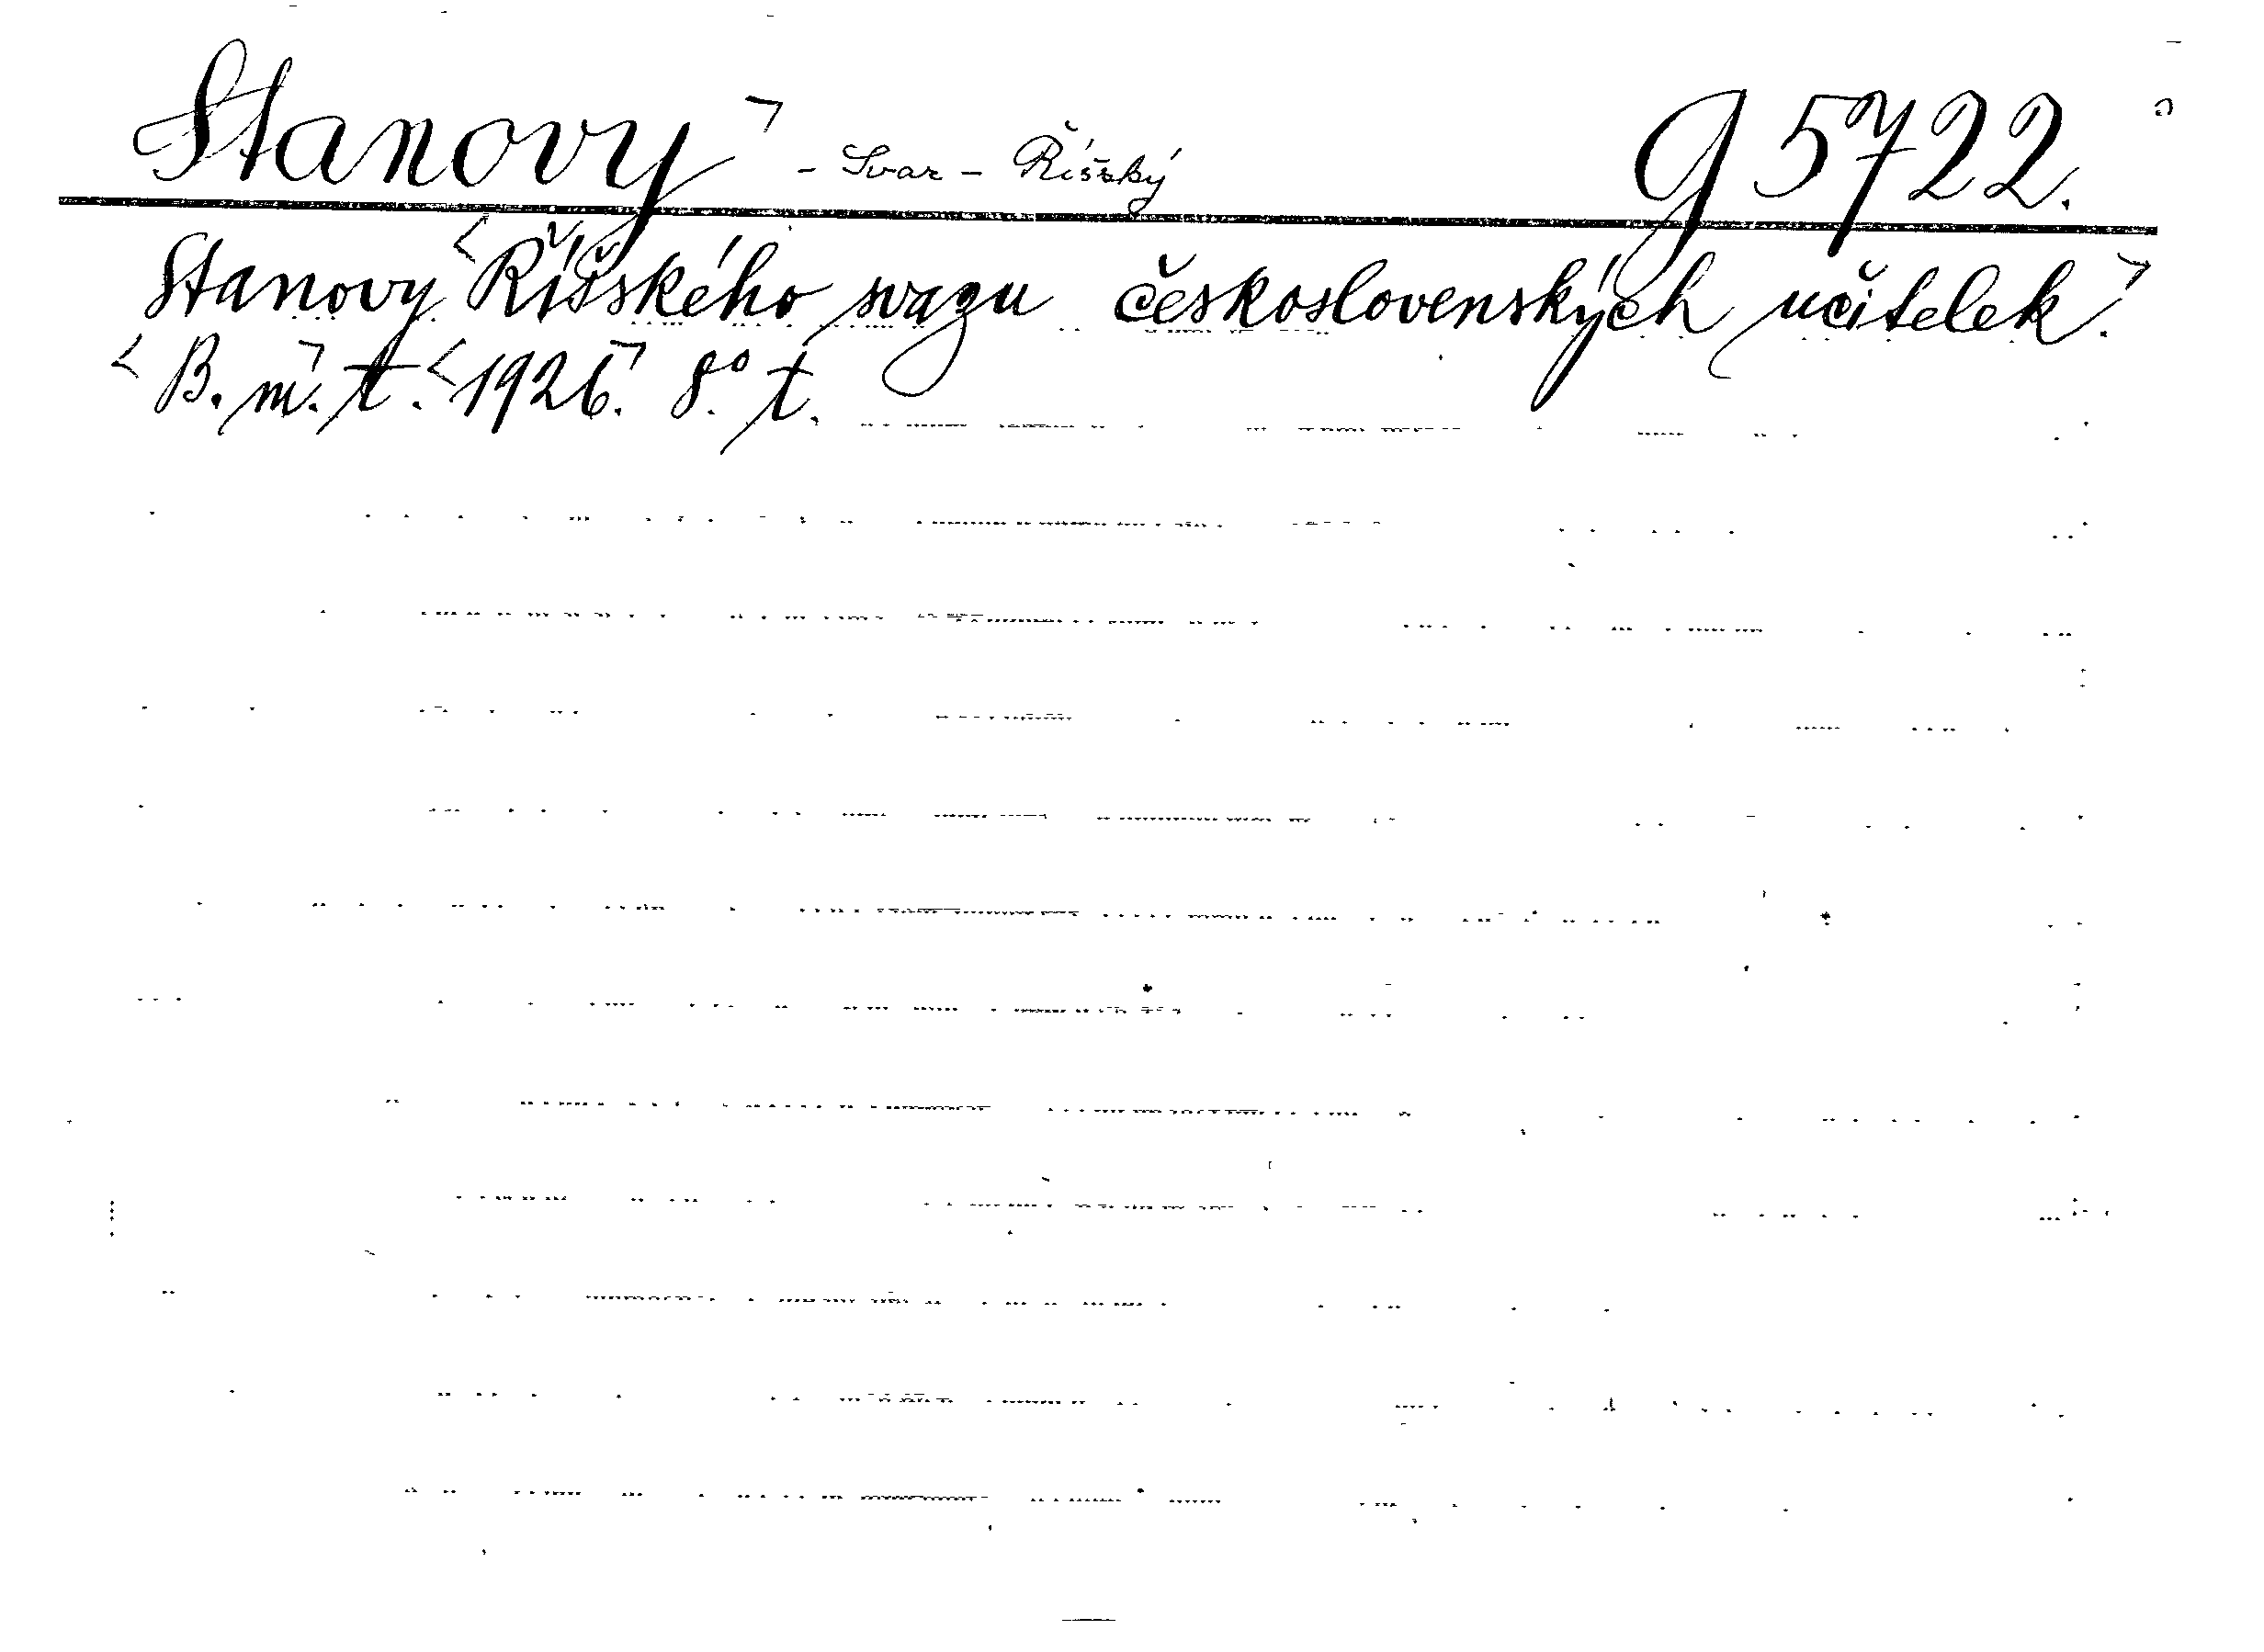 Stanovy - Svaz - Říšský G 5722.
Stanovy Říšského svazu československých učitelek.
B. m. t. 1926. 8° t.